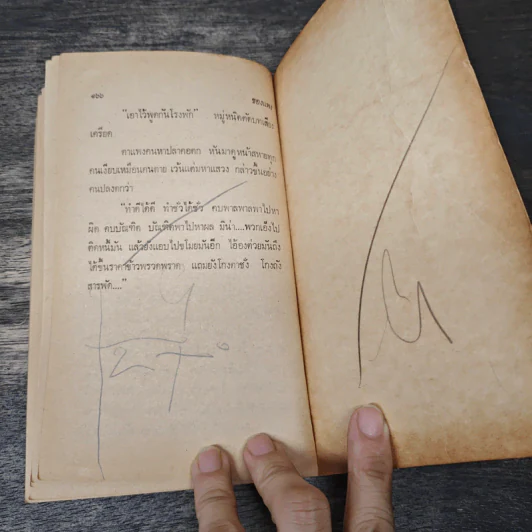 ๑๖๖
"เอาไว้พูดกันโรงพัก" หมู่หนิดตัดบทเสียง
เครียด
ตาแทงคนหาปลาคอตก หันมาดูหน้าสหายทุก
คนเงียบเหมือนคนตาย เว้นแต่มหาแสวง กล่าวขึ้นอย่าง
คนปลงตกว่า
"ทำดีได้ดี ทำชั่วได้ชั่ว คบพาลพาลพาไปหา
ผิด คบบัณฑิต บัณฑิตพาไปหาผล มิน่า....พวกเอ็งไป
ติดหนี้มัน แล้วยังแอบไปขโมยมันอีก ไอ้องค์วยมันถึง
ได้ขึ้นราคาข้าวพรวดพราด แถมยังโกงตาชั่ง โกงถัง
สารพัด...."